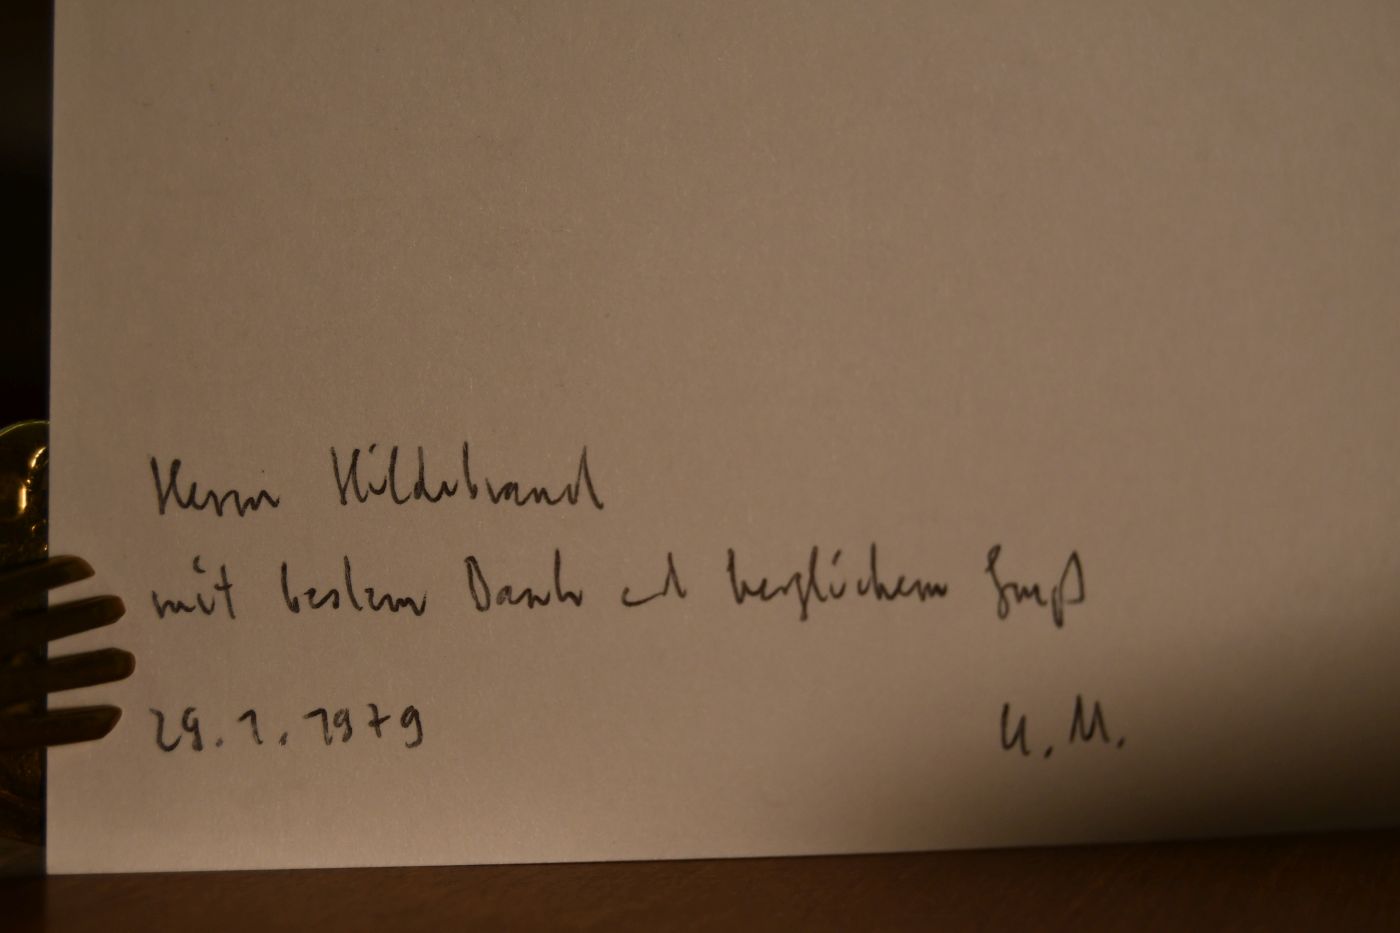 Herrn Hildebrand
mit bestem Dank und herzlichem Gruß
29.1.1979
U.M.